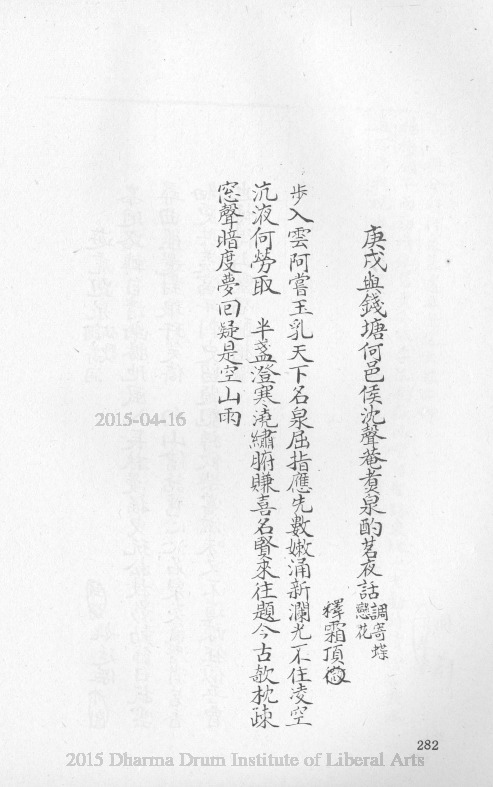 庚戌與錢塘何邑侯沈聲菴煑泉酌茗夜話調寄蝶戀花
釋霜頂徵
步入雲阿嘗玉乳天下名泉屈指應先數嫩涌新瀾光不住凌空
沆液何勞取　半盞澄寒澆繡腑賺喜名賢來往題今古欹枕疎
窓聲暗度夢回疑是空山雨
2015-04-16
282
2015 Dharma Drum Institute of Liberal Arts